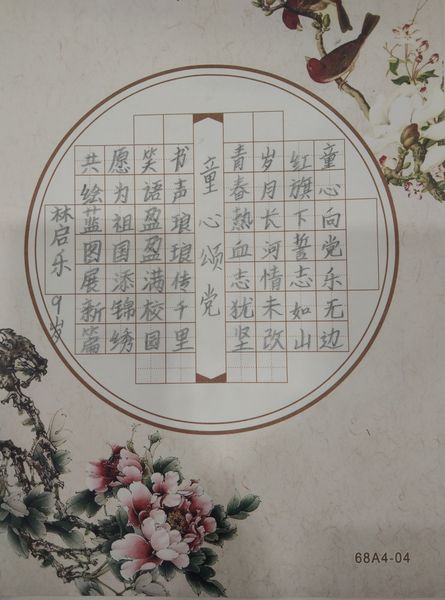 童心向党乐无边
红旗下誓志如山
岁月长河情未改
青春热血志犹坚
童心颂党
书声琅琅传千里
笑语盈盈满校园
愿为祖国添锦绣
共绘蓝图展新篇
林启乐 9岁
68A4-04